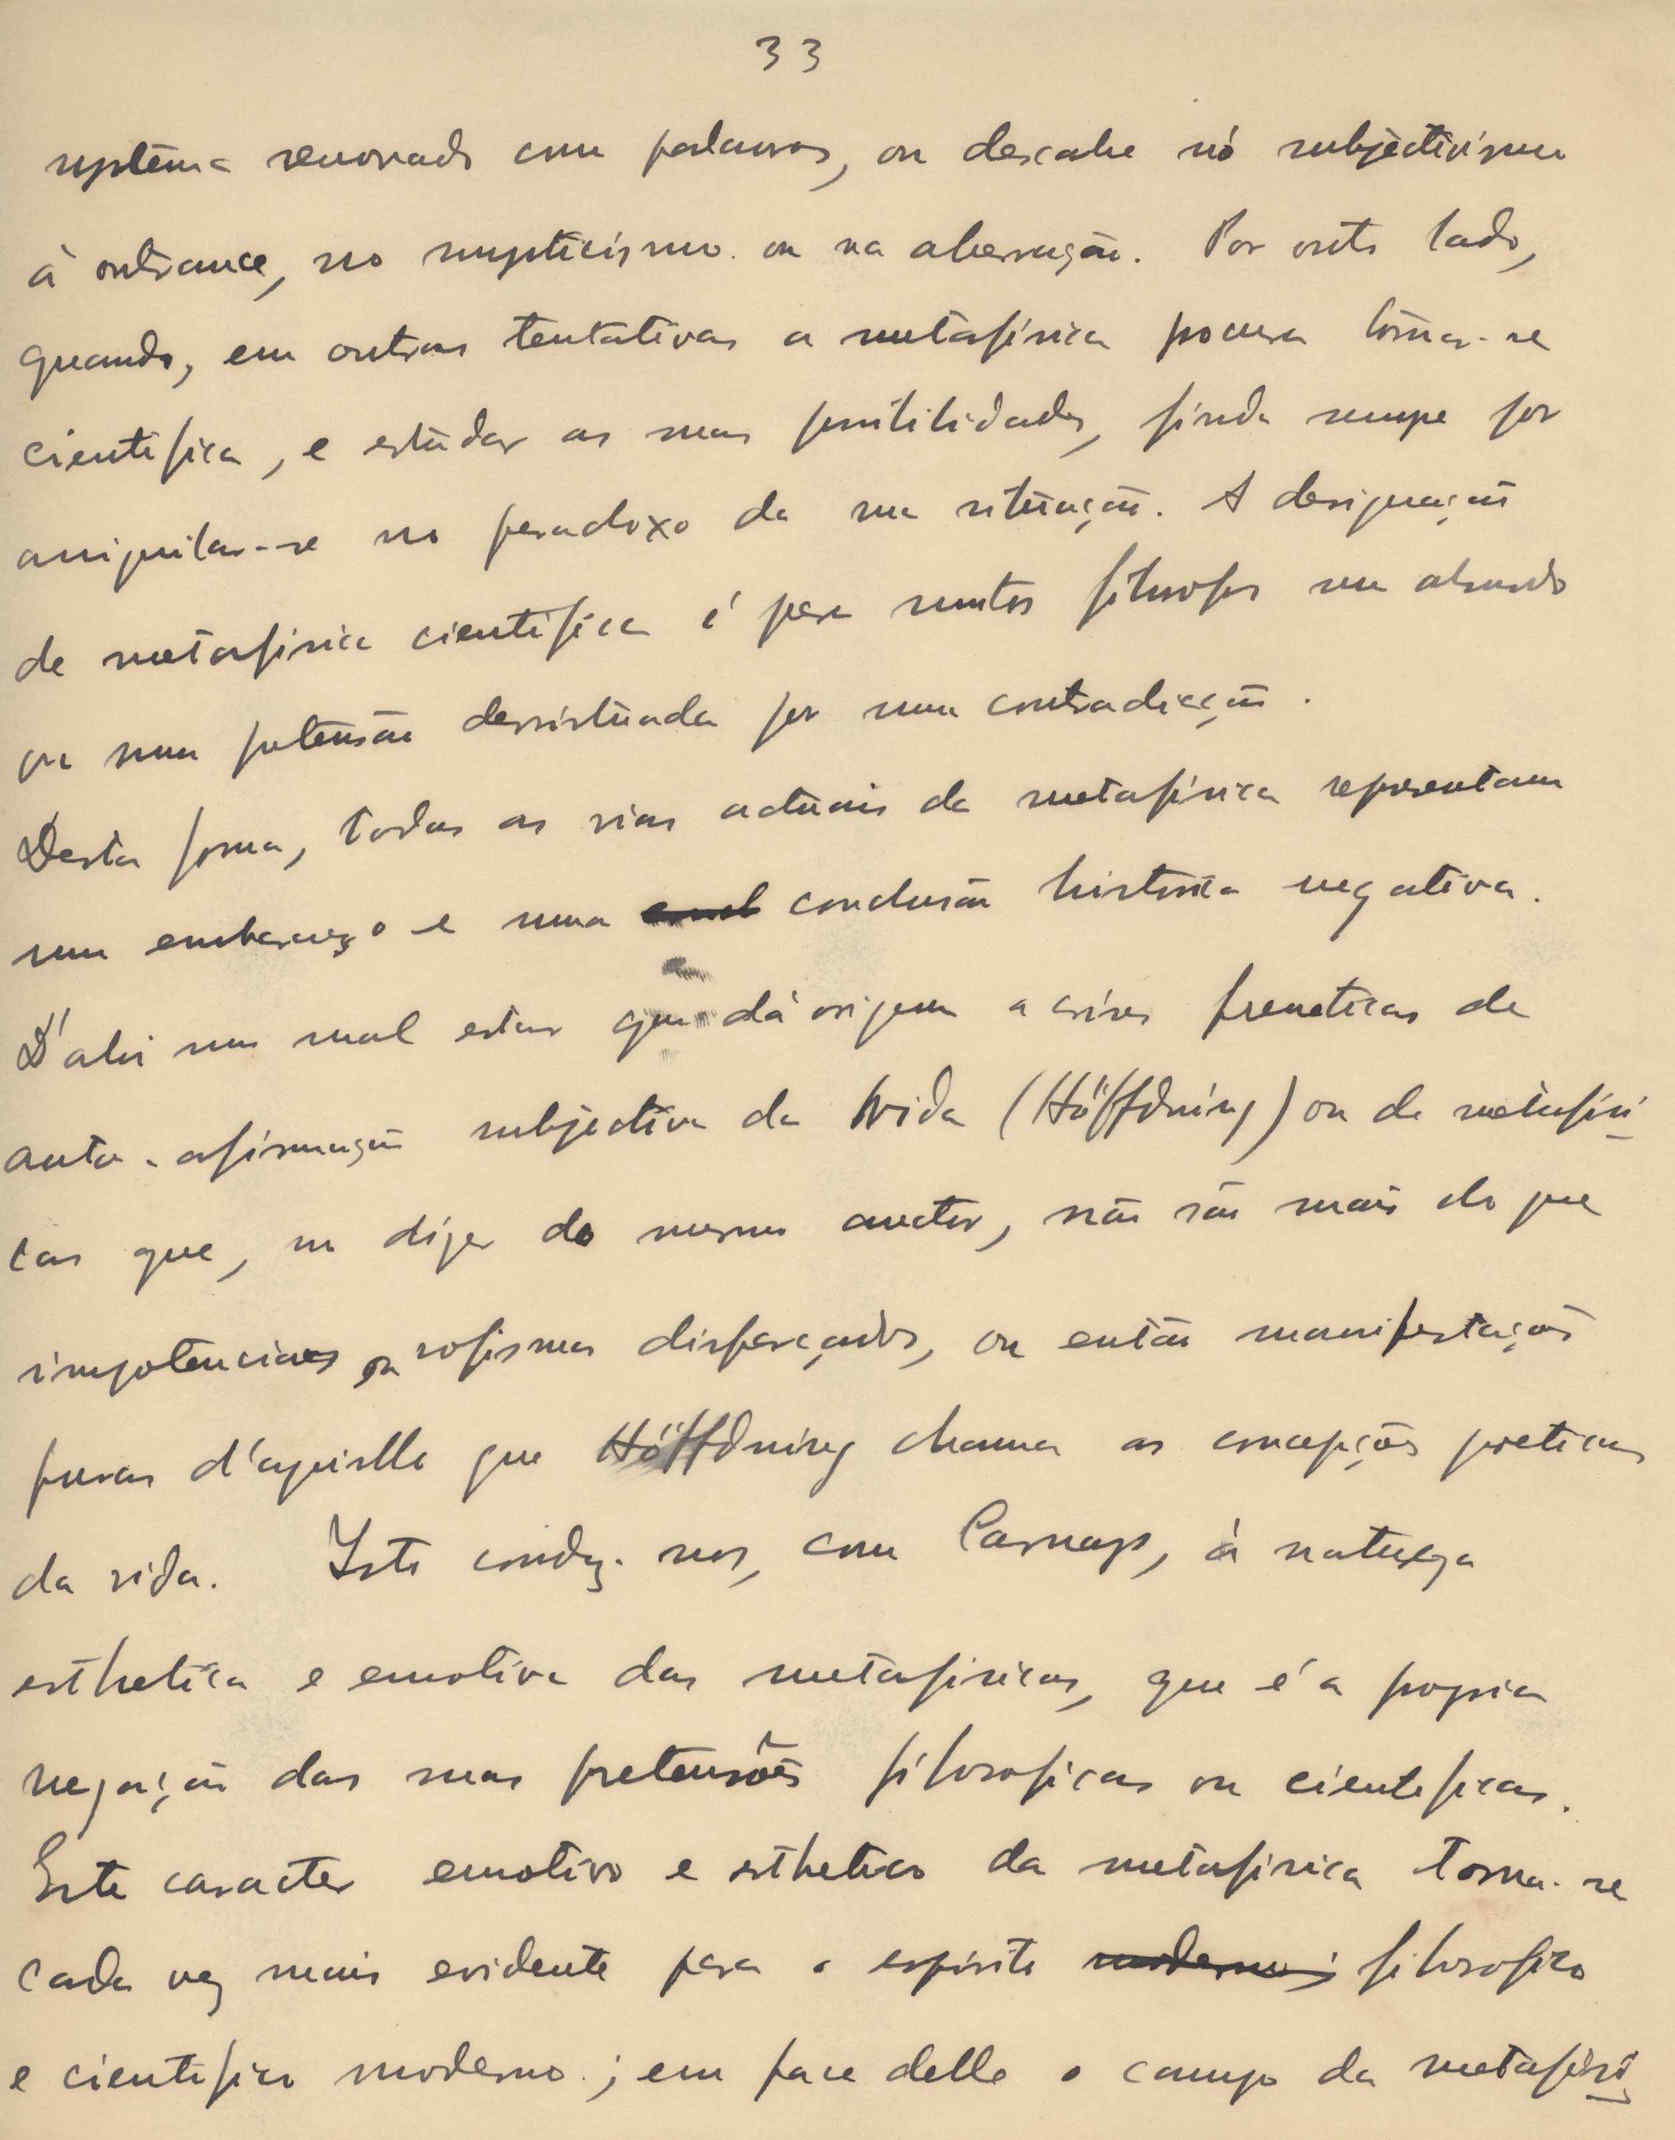 33
systema renovado com palavras, ou descahe no subjectivismo
à outrance, no mysticismo ou na aberração. Por outro lado,
quando, em outras tentativas a metafísica procura tornar-se
cientifica, e estudar as suas possibilidades, finda sempre por
aniquilar-se no paradoxo da sua situação. A designação
de metafísica cientifica é para muitos filosofos um absurdo
ou uma pretensão desvirtuada por uma contradicção.
Desta forma, todas as vias actuais da metafísica representam
um embaraço e uma conclusão historica negativa.
D'ahi um mal estar que dá origem a crises freneticas de
auto-afirmação subjectiva da vida (Höffdning) ou de metafisi-
cas que, no dizer do mesmo auctor, não são mais do que
impotencias ou sofismas disfarçados, ou então manifestações
puras d'aquillo que Höffdning chama as concepções poeticas
da vida. Isto conduz-nos, com Carnap, à natureza
esthetica e emotiva das metafisicas, que é a propria
negação das suas pretensões filosoficas ou cientificas.
Este caracter emotivo e esthetico da metafisica torna-se
cada vez mais evidente para o espirito moderno; filosofico
e cientifico moderno; em face delle o campo da metafisi-